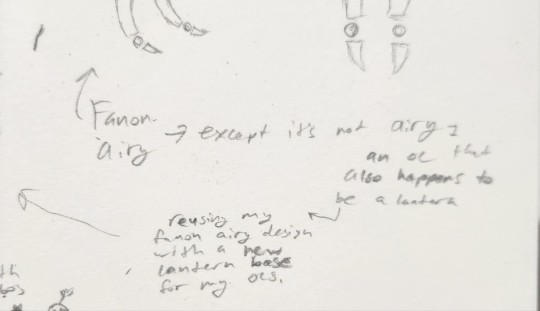 Fanon
airy → except it's not airy,
an oc that
also happens to
be a lantern
reusing my
fanon airy design
with a new
lantern base
for my ocs.
th